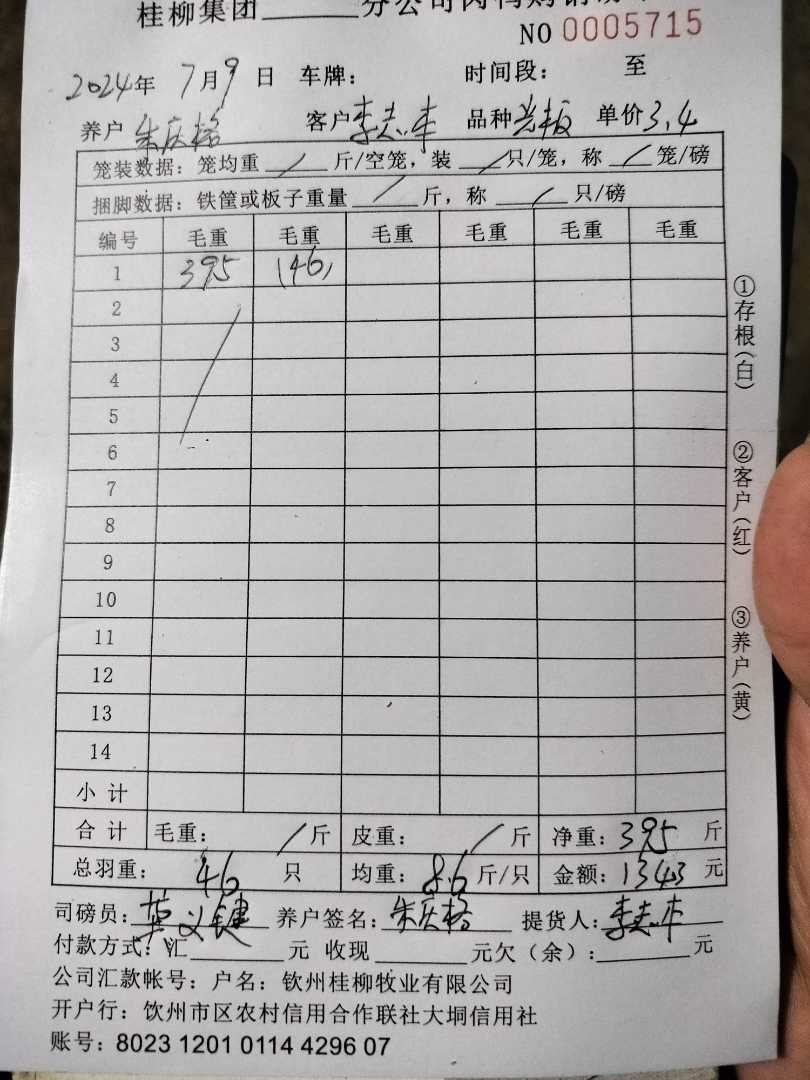 桂柳集团______分公司肉鸭购销
NO 0005715
2024年 7月9日 车牌： 时间段： 至
养户 朱庆格 客户 李志丰 品种 光板 单价3.4
笼装数据：笼均重 / 斤/空笼，装 / 只/笼，称 / 笼/磅
捆脚数据：铁筐或板子重量 / 斤，称 / 只/磅
编号 毛重 毛重 毛重 毛重 毛重 毛重
1 395 (46)
2
3
4
5
6
7
8
9
10
11
12
13
14
小计
合计 毛重： / 斤 皮重： / 斤 净重：395 斤
总羽重： 46 只 均重：8.6 斤/只 金额：1343 元
司磅员： 养户签名：朱庆格 提货人：李志丰
付款方式：汇______元 收现______元欠（余）：______元
公司汇款帐号：户名：钦州桂柳牧业有限公司
开户行：钦州市区农村信用合作联社大垌信用社
账号：8023 1201 0114 4296 07
①存根(白)
②客户(红)
③养户(黄)